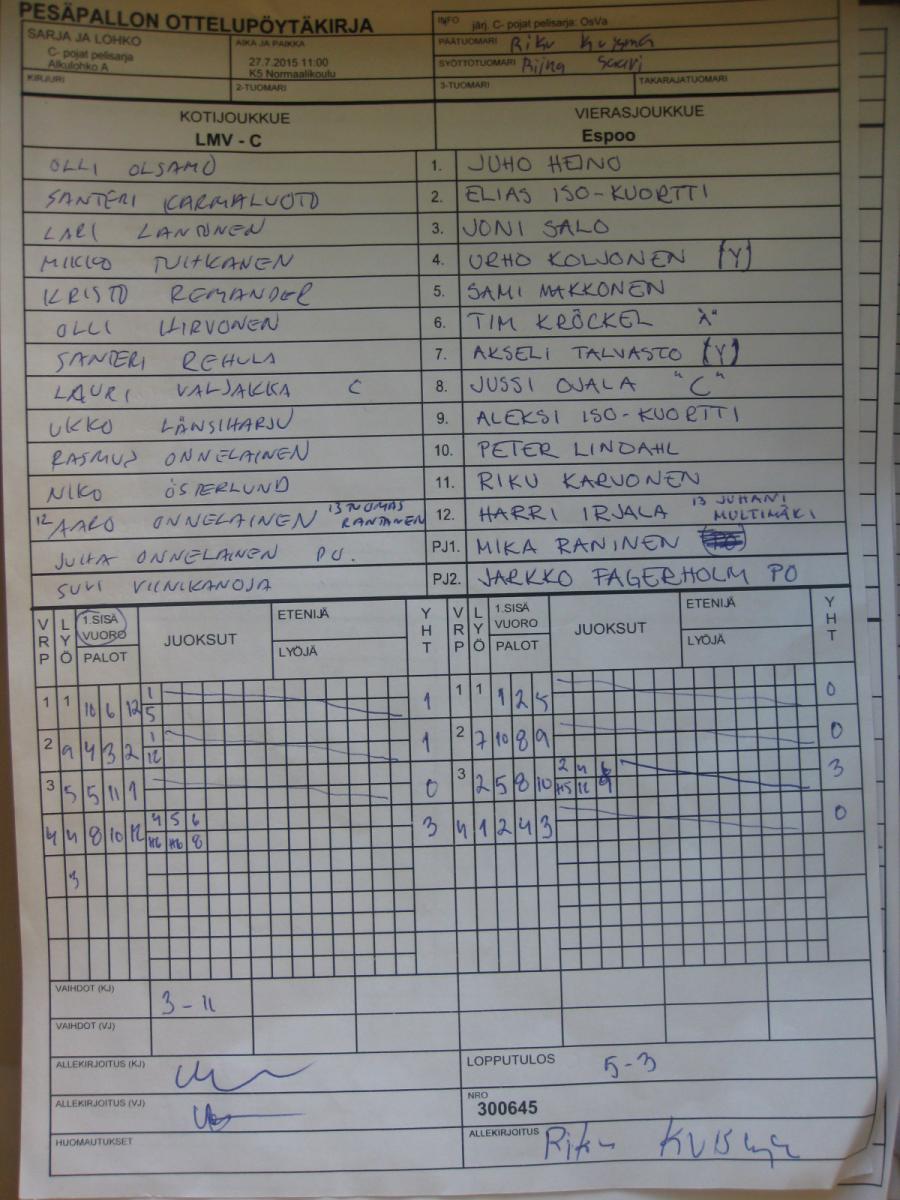 PESÄPALLON OTTELUPÖYTÄKIRJA
INFO järj. C- pojat pelisarja: OsVa
SARJA JA LOHKO
C- pojat pelisarja
Alkulohko A
AIKA JA PAIKKA
27.7.2015 11:00
K5 Normaalikoulu
PÄÄTUOMARI Riku Kuisma
SYÖTTÖTUOMARI Riina Saari
KIRJURI
2-TUOMARI
3-TUOMARI
TAKARAJATUOMARI
KOTIJOUKKUE
LMV - C
VIERASJOUKKUE
Espoo
OLLI OLSAMO 1. JUHO HEINO
SANTERI KARMALUOTO 2. ELIAS ISO-KUORTTI
LARI LANTONEN 3. JONI SALO
MIKKO TUHKANEN 4. URHO KOLJONEN (Y)
KRISTO REMANDER 5. SAMI MAKKONEN
OLLI HIRVONEN 6. TIM KRÖCKEL
SANTERI REHULA 7. AKSELI TALVASTO (Y)
LAURI VALJAKKA C 8. JUSSI OJALA "C"
UKKO LÄNSIHARJU 9. ALEKSI ISO-KUORTTI
RASMUS ONNELAINEN 10. PETER LINDAHL
NIKO ÖSTERLUND 11. RIKU KARVONEN
12 AARO ONNELAINEN 13 TUOMAS RANTANEN 12. HARRI IRJALA 13 JUHANI MULTIMÄKI
JUHA ONNELAINEN PJ. PJ1. MIKA RANINEN
SUVI VIINIKANOJA PJ2. JARKKO FAGERHOLM PO
VRP LYÖ 1.SISÄ VUORO PALOT JUOKSUT ETENIJÄ LYÖJÄ YHT VRP LYÖ 1.SISÄ VUORO PALOT JUOKSUT ETENIJÄ LYÖJÄ YHT
1 1 10 6 12 1 5 1 1 1 1 2 5 0
2 9 4 3 2 1 12 1 2 7 10 8 9 0
3 5 5 11 1 0 3 2 5 8 10 2 4 6 3
4 4 8 10 12 4 5 6 8 3 4 1 2 4 3 0
3
VAIHDOT (KJ) 3-11
VAIHDOT (VJ)
ALLEKIRJOITUS (KJ)
LOPPUTULOS 5-3
ALLEKIRJOITUS (VJ)
NRO
300645
HUOMAUTUKSET
ALLEKIRJOITUS Riku Kuisma